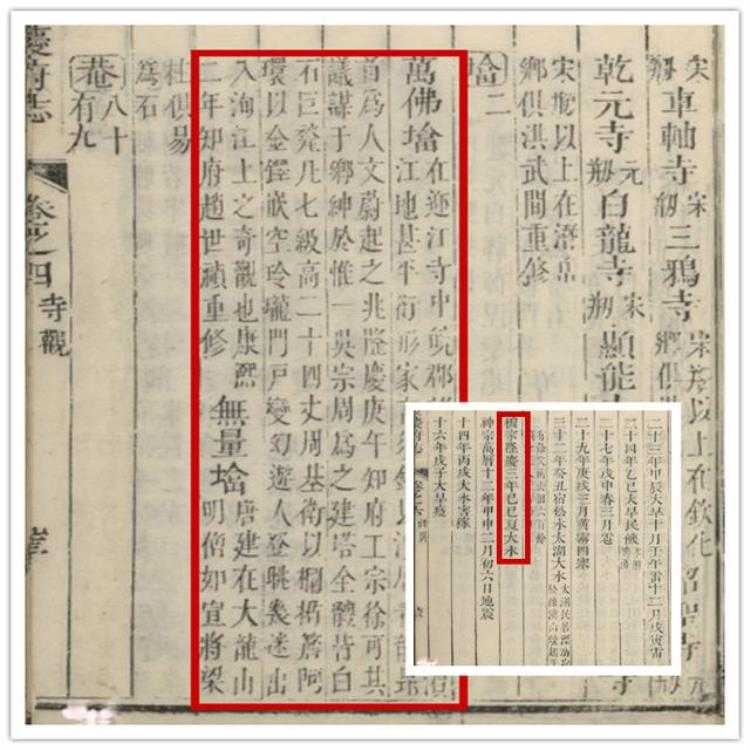 宋
剏
車軸寺
宋
剏
三鴉寺
以上在欽化
鄉俱
元
乾元寺
元
剏
白龍寺
宋
剏
顯能
寺
宋剏以上在澄
鄉俱洪武間重修
墖二
萬佛墖
在迎江寺中皖郡
江地甚平衍形家
首爲人文蔚起之兆隆慶庚午知府王宗徐可共
議謀于鄉紳於惟一吳宗周爲之建塔全體皆白
石巨甃凡七級高二十四丈周基衛以欄楯簷阿
環以金鐸嵌空玲瓏門戶變幻遊人登眺幾迷出
入洵江上之奇觀也康熙
二年知府趙世禎重修
無量墖
唐建在大龍山
明僧如宣將梁
柱俱易
爲石
巷
八十
有九
慶府志
卷之四
寺觀
二十三年甲辰大旱十月壬午雷十二月戊寅雷
二十四年乙巳大旱民饑
二十七年戊申春三月雹
二十九年庚戌三月黃霧四塞
三十二年癸丑宿松水太湖大水
穆宗隆慶三年己巳夏大水
神宗萬曆十二年甲申二月初六日地震
十四年丙戌大水害稼
十六年戊子大旱疫
慶府志
卷之六